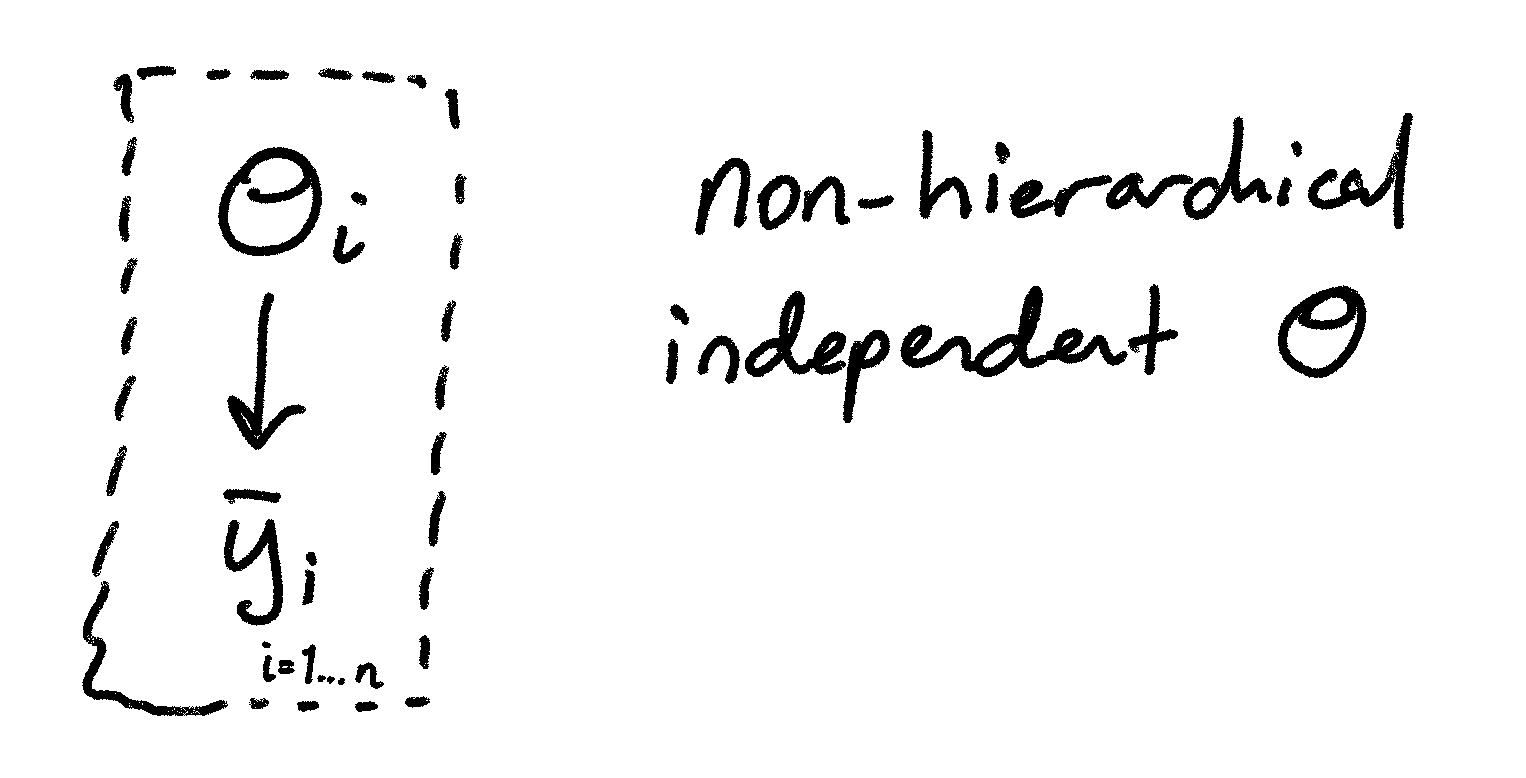 θi
ȳi
i=1...n
non-hierarchical
independent θ